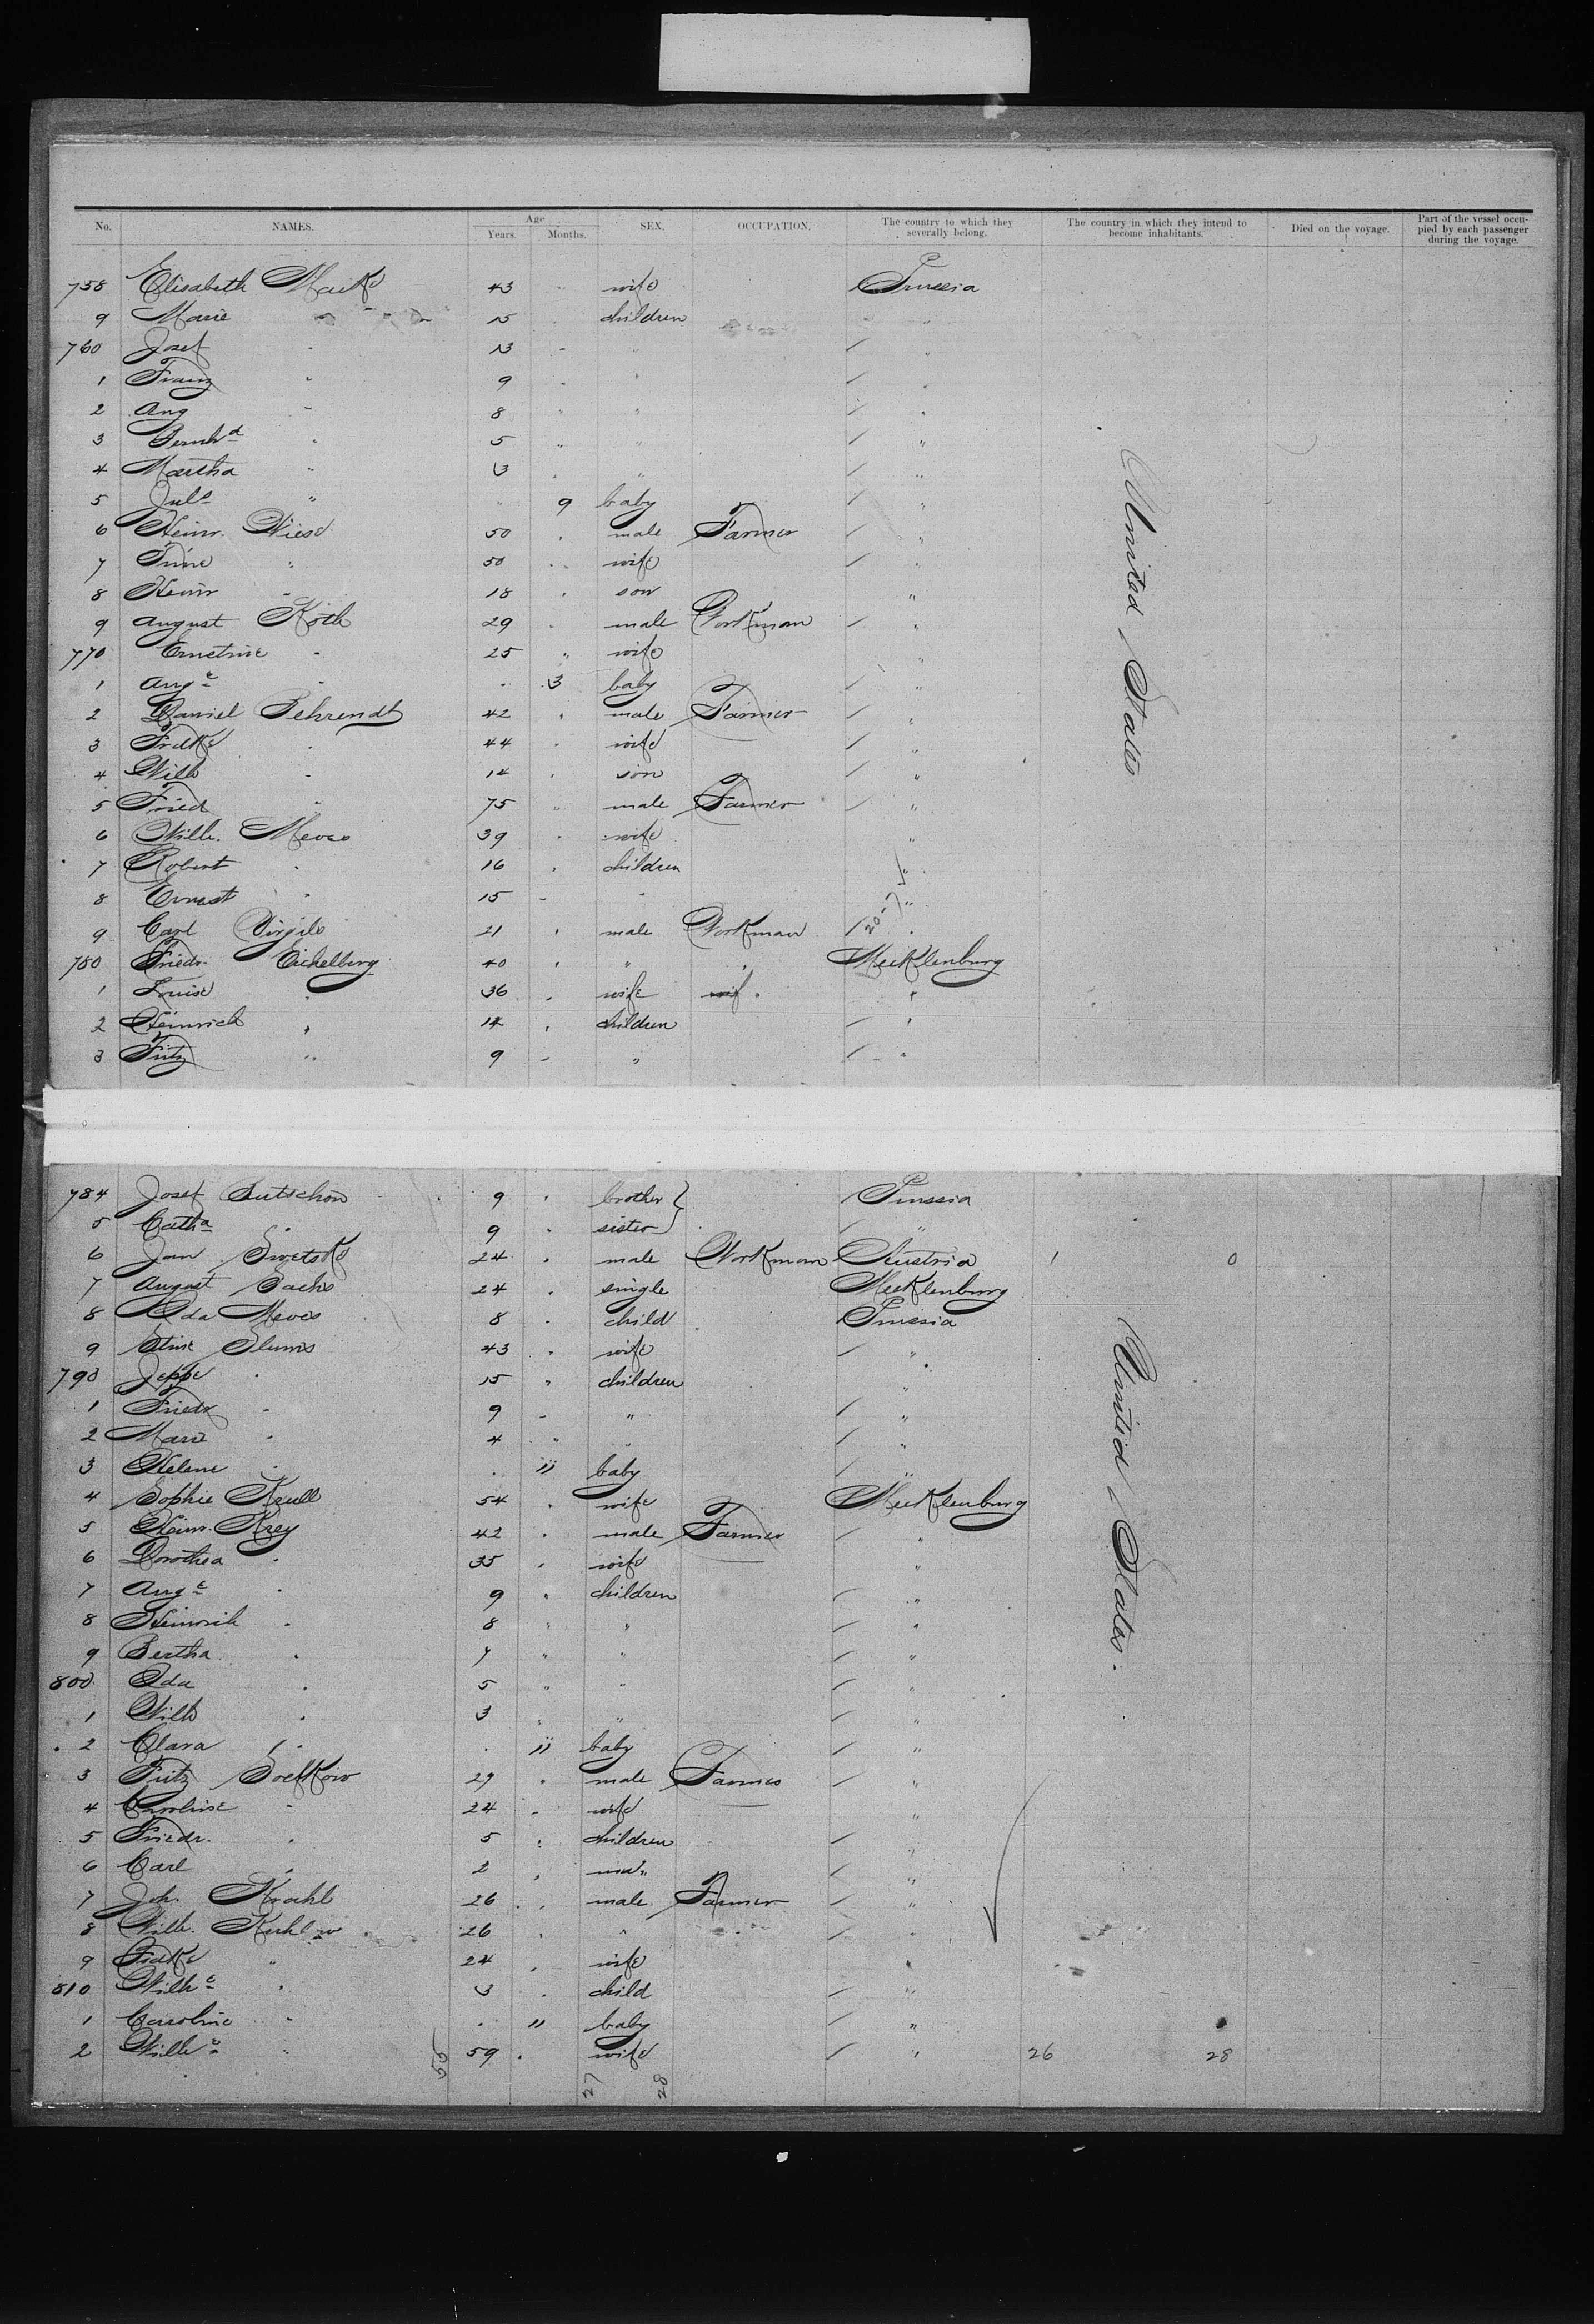 No. NAMES. Age Years. Months. SEX. OCCUPATION. The country to which they severally belong. The country in which they intend to become inhabitants. Died on the voyage. Part of the vessel occupied by each passenger during the voyage.
758 Elisabeth 43 wife Prussia
9 Marie 15 children "
760 Josef " 13 " / "
1 Franz " 9 " / "
2 Aug " 8 " / "
3 Bernhd " 5 " / "
4 Martha " 3 " / "
5 Juls " " 9 baby / "
6 Heinr. Wiese 50 male Farmer / "
7 Trine " 50 wife / "
8 Heinr " 18 son "
9 August Köth 29 male Workman / "
770 Ernstine " 25 wife "
1 Auge " 3 baby / "
2 Daniel Behrendt 42 male Farmer / "
3 Fridke " 44 wife / "
4 Wilh " 14 son / "
5 Fried " 75 male Farmer / "
6 Wilh. Meves 39 wife "
7 Robert " 16 children "
8 Ernest " 15 " "
9 Carl Virgils 21 male Workman / "
20-7
780 Friedr. Eichelberg 40 " " Mecklenburg
1 Louise " 36 wife wif "
2 Heinrich " 14 children / "
3 Fritz " 9 " / "
United States
784 Josef Butschon 9 brother } Prussia
5 Catha " 9 sister } / "
6 Jan 24 male Workman Austria 1 0
7 August Sachs 24 single Mecklenburg
8 Ida Meves 8 child Prussia
9 Stine 43 wife / "
790 Jeppe " 15 children "
1 Friedr " 9 " / "
2 Marie " 4 " / "
3 Helene " 11 baby / "
4 Sophie Krull 54 wife Mecklenburg
5 Heinr. Krey 42 male Farmer / "
6 Dorothea " 35 wife "
7 Auge " 9 children / "
8 Heinrich " 8 " / "
9 Bertha " 7 " / "
800 Ida " 5 " / "
1 Wilh " 3 " / "
2 Clara " 11 baby / "
3 Fritz Soefkow 29 male Farmer / "
4 Caroline " 24 wife "
5 Friedr. " 5 children / "
6 Carl " 2 " / "
7 Joh. Krahl 26 male Farmer / "
8 Wilh. 26 " " / "
9 Fridke " 24 wife "
810 Wilhe " 3 child / "
1 Caroline " 11 baby / "
2 Wilhe " 59 wife / " 26 28
United States.
55 27 28